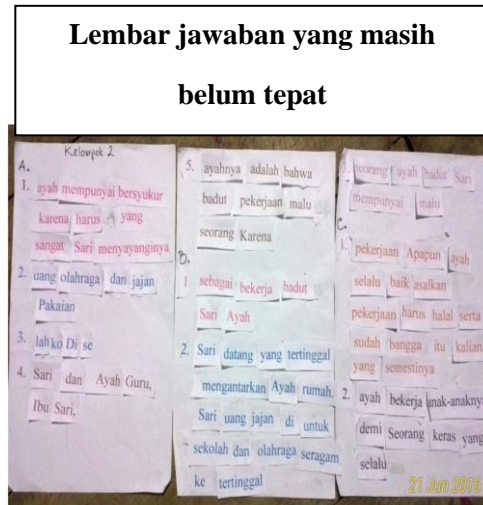 Lembar jawaban yang masih
belum tepat
Kelompok 2
A.
1. ayah mempunyai bersyukur
karena harus yang
sangat Sari menyayanginya
2. uang olahraga dan jajan
Pakaian
3. lah ko Di se
4. Sari dan Ayah Guru,
Ibu Sari,
5. ayahnya adalah bahwa
badut pekerjaan malu
seorang Karena
B.
1 sebagai bekerja badut
Sari Ayah
2. Sari datang yang tertinggal
mengantarkan Ayah rumah.
Sari uang jajan di untuk
sekolah dan olahraga seragam
ke tertinggal
3. seorang ayah badut Sari
mempunyai malu
C.
1. pekerjaan Apapun ayah
selalu baik asalkan
pekerjaan harus halal serta
sudah bangga itu kalian
yang semestinya
2. ayah bekerja anak-anaknya
demi Seorang keras yang
selalu
21 Jun 2016